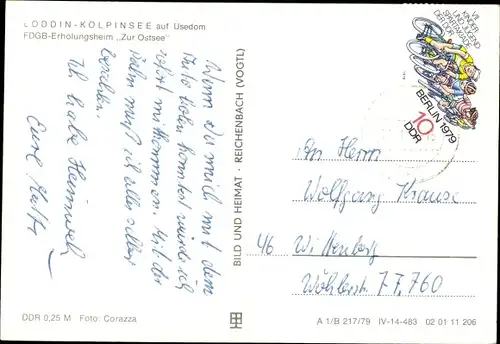 LODDIN-KÖLPINSEE auf Usedom
FDGB-Erholungsheim „Zur Ostsee"
Wenn Du mich mit dem
Auto holen könntest würde ich
sofort mitkommen. Mit der
muß ich alles selber
bezahlen.
Ich habe Heimweh
Eure
BILD UND HEIMAT · REICHENBACH (VOGTL)
VII.
KINDER
UND JUGEND
SPARTAKIADE
DER DDR
BERLIN 1979
10
DDR
An Herrn
Wolfgang Krause
46 Wittenberg
DDR 0,25 M Foto: Corazza
A 1/B 217/79 IV-14-483 02 01 11 206